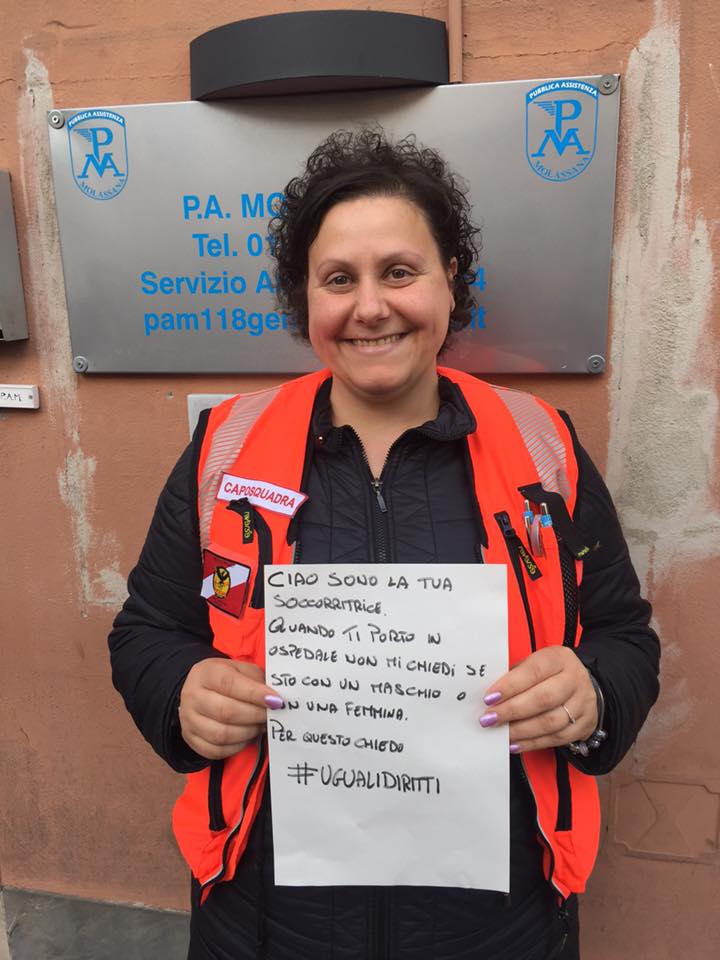 PUBBLICA ASSISTENZA
PMA
MOLASSANA
PUBBLICA ASSISTENZA
PMA
MOLASSANA
P.A.
Tel.
Servizio
pam118
P.A.M.
CAPOSQUADRA
CIAO SONO LA TUA
SOCCORRITRICE.
QUANDO TI PORTO IN
OSPEDALE NON MI CHIEDI SE
STO CON UN MASCHIO O
UNA FEMMINA.
PER QUESTO CHIEDO
#UGUALIDIRITTI